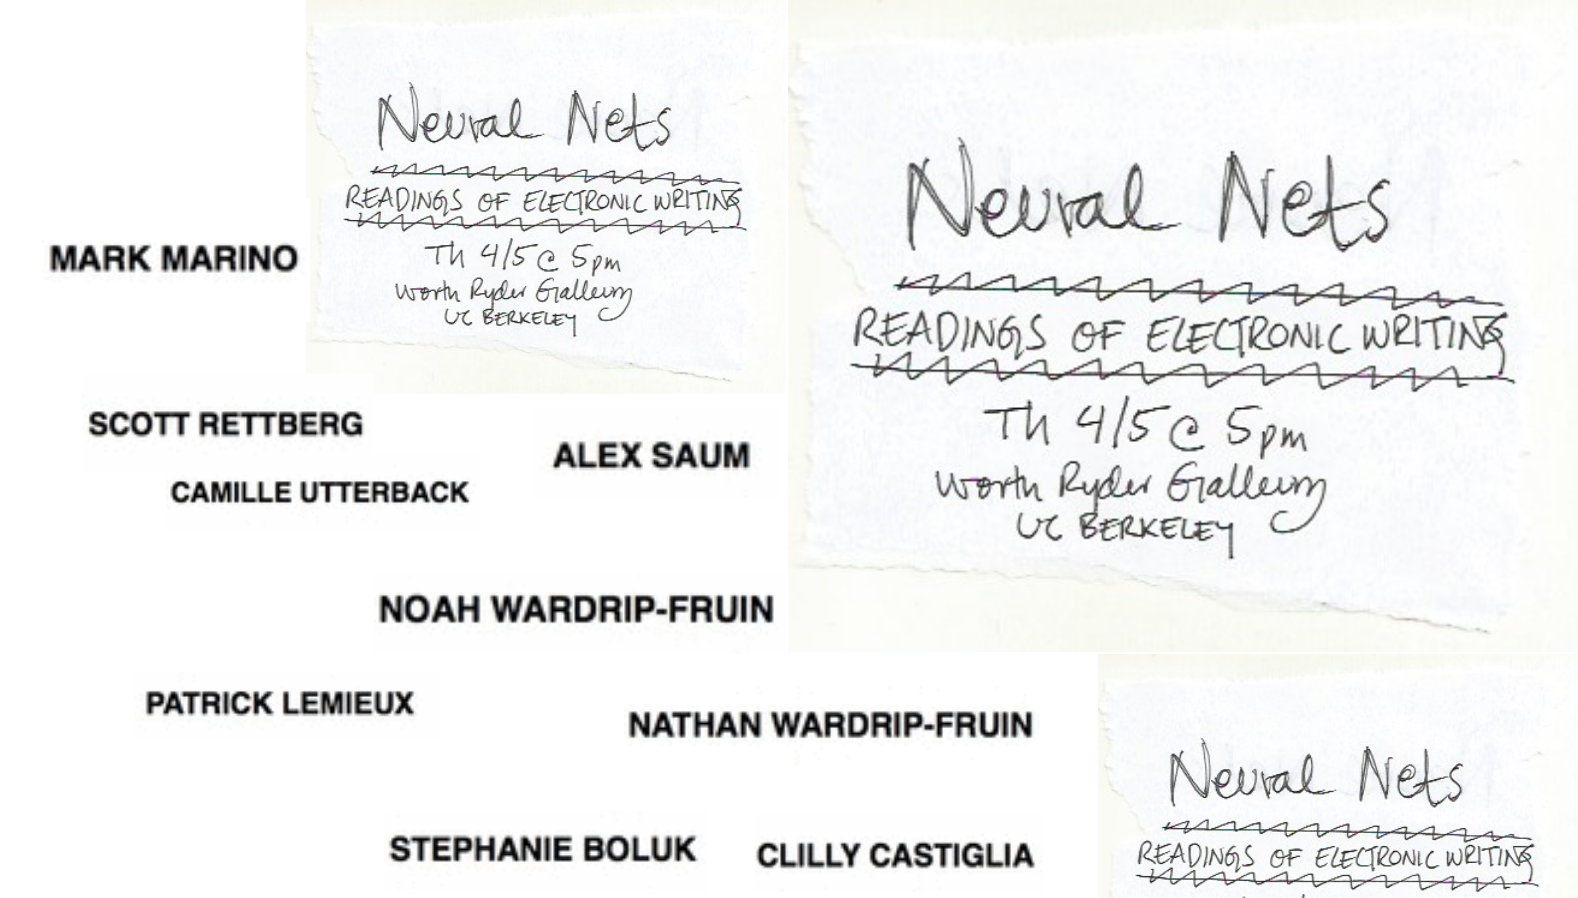 Neural Nets
READINGS OF ELECTRONIC WRITING
Th 4/5 @ 5pm
Worth Ryder Gallery
UC BERKELEY
MARK MARINO
Neural Nets
READINGS OF ELECTRONIC WRITING
Th 4/5 @ 5pm
Worth Ryder Gallery
UC BERKELEY
SCOTT RETTBERG
ALEX SAUM
CAMILLE UTTERBACK
NOAH WARDRIP-FRUIN
PATRICK LEMIEUX
NATHAN WARDRIP-FRUIN
STEPHANIE BOLUK
CLILLY CASTIGLIA
Neural Nets
READINGS OF ELECTRONIC WRITING